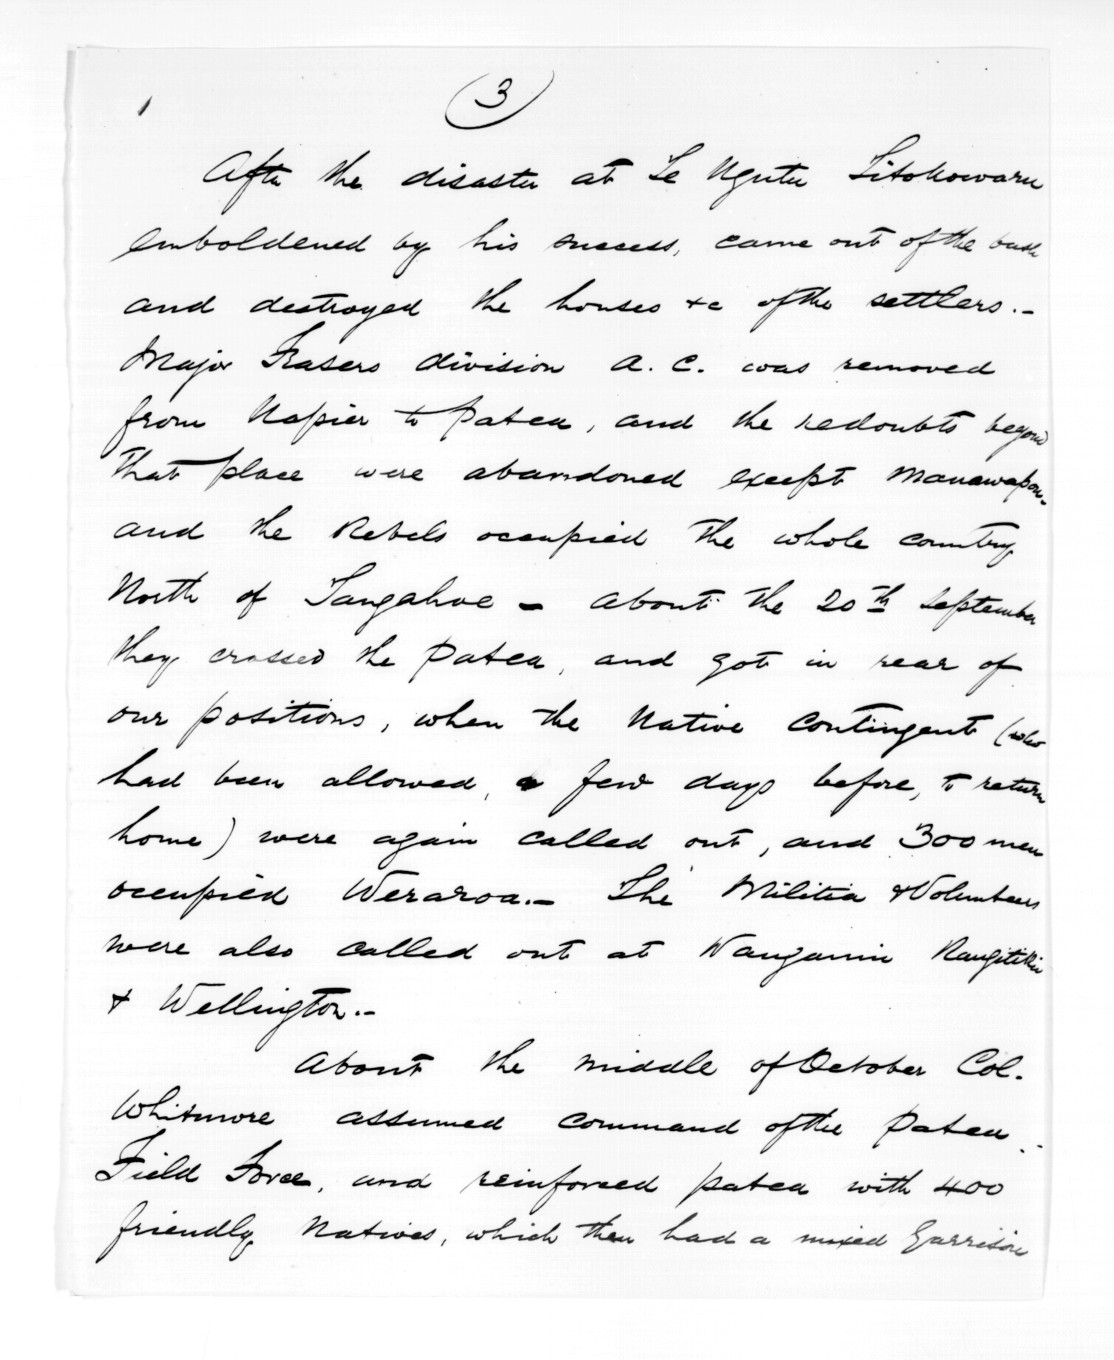 (3)
After the disaster at Te Ngutu Titokowaru
emboldened by his success, came out of the bush
and destroyed the houses &c of the settlers.-
Major Frasers division A. C. was removed
from Napier to Patea, and the redoubts beyond
that place were abandoned except Manawapou-
and the Rebels occupied the whole country
North of Tangahoe - about the 20th September
they crossed the Patea, and got in rear of
our positions, when the Native Contingent (who
had been allowed, a few days before, to return
home) were again called out, and 300 men
occupied Weraroa.- The Militia & Volunteers
were also called out at Wanganui Rangitikei
& Wellington.-
About the middle of October Col.
Whitmore assumed command of the Patea
Field Force, and reinforced Patea with 400
friendly Natives, which then had a mixed Garrison